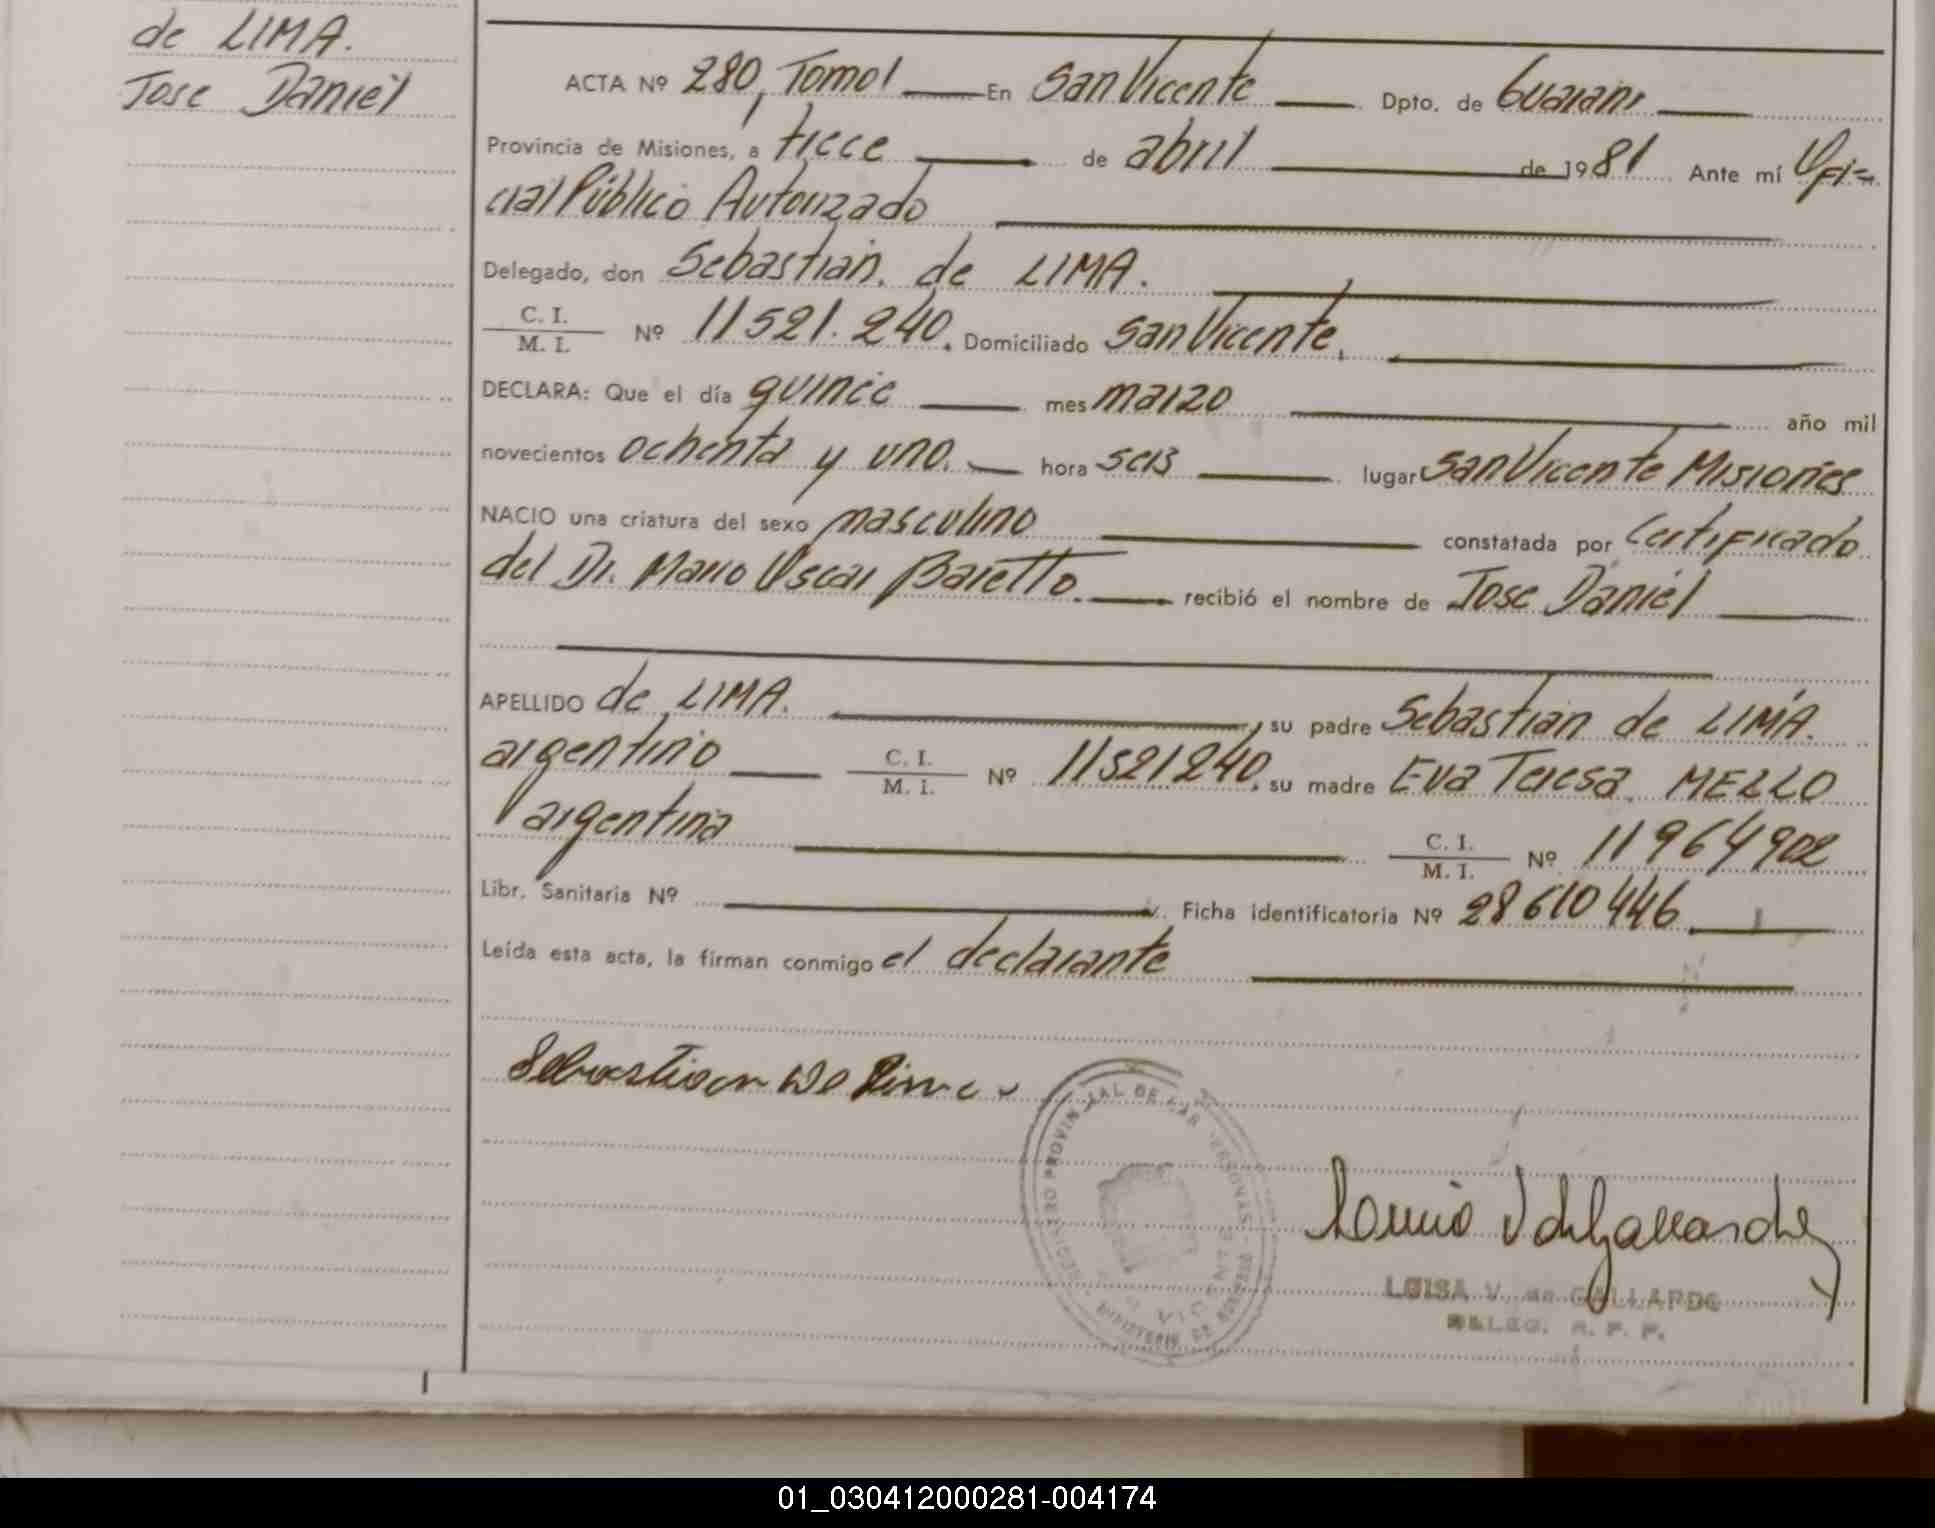 de LIMA.
Jose Daniel
ACTA Nº 280, Tomo I En San Vicente Dpto. de Guarani
Provincia de Misiones, a trece de abril de 1981 Ante mí Ofi-
cial Público Autorizado
Delegado, don Sebastian. de LIMA.
C. I.
M. I. Nº 11521.240. Domiciliado San Vicente,
DECLARA: Que el día quince mes marzo año mil
novecientos ochenta y uno. hora seis lugar San Vicente Misiones
NACIO una criatura del sexo masculino constatada por Certificado
del Dr. Mario Oscar Baretto. recibió el nombre de Jose Daniel
APELLIDO de LIMA. , su padre Sebastian de LIMA.
argentino C. I. M. I. Nº 11521240, su madre Eva Teresa. MELLO
argentina C. I. M. I. Nº 11964902
Libr. Sanitaria Nº Ficha identificatoria Nº 28610446
Leída esta acta, la firman conmigo el declarante
Sebastian de Lima
REGISTRO PROVINCIAL DE LAS PERSONAS - MINISTERIO DE GOBIERNO
VICENTE
LUISA V. de GALLARDO
DELEG. R. P. P.
01_030412000281-004174